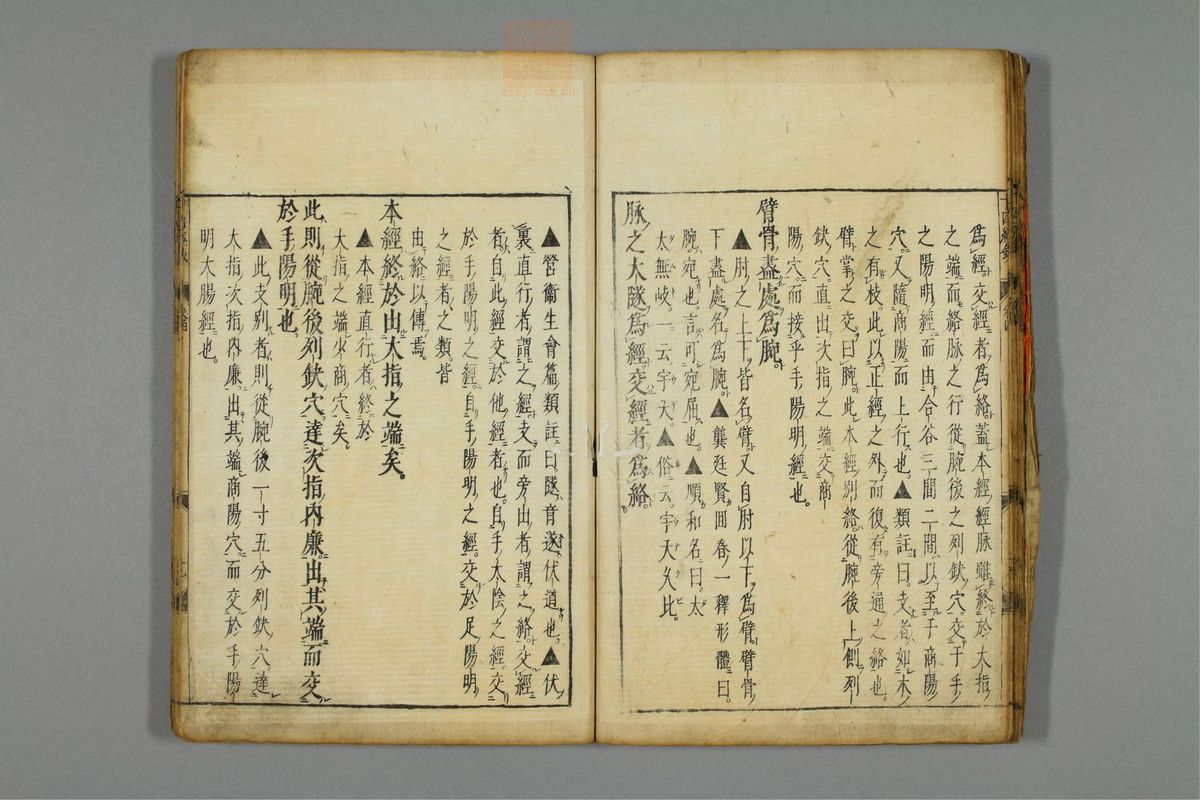 爲經交經者爲絡蓋本經經脉雖終於大指
之端而絡脉之行從腕後之列缺穴交于手
之陽明經而由合谷三間二間以至于商陽
穴又隨商陽而上行也▲類註曰支者如木
之有枝此以正經之外而復有旁通之絡也
臂掌之交曰腕此本經別絡從腕後上側列
缺穴直出次指之端交商
陽穴而接乎手陽明經也
臂骨盡處爲腕
▲肘之上下皆名臂又自肘以下爲臂臂骨
下盡處名爲腕▲龔廷賢回春一釋形體曰
腕宛也言可宛屈也▲順和名曰太
太無岐一云宇天▲俗云宇天久比
脉之大隧爲經交經者爲絡
▲營衛生會篇類註曰隧音遂伏道也▲伏
裏直行者謂之經支而旁出者謂之絡交經
者自此經交於他經者也自手太陰之經交
於手陽明之經自手陽明之經交於足陽明
之經者之類皆
由絡以傳焉
本經終於出大指之端矣
▲本經直行者終於
大指之端少商穴矣
此則從腕後列缺穴達次指內廉出其端而交
於手陽明也
▲此支別者則從腕後一寸五分列缺穴達
大指次指內廉出其端商陽穴而交於手陽
明大腸經也